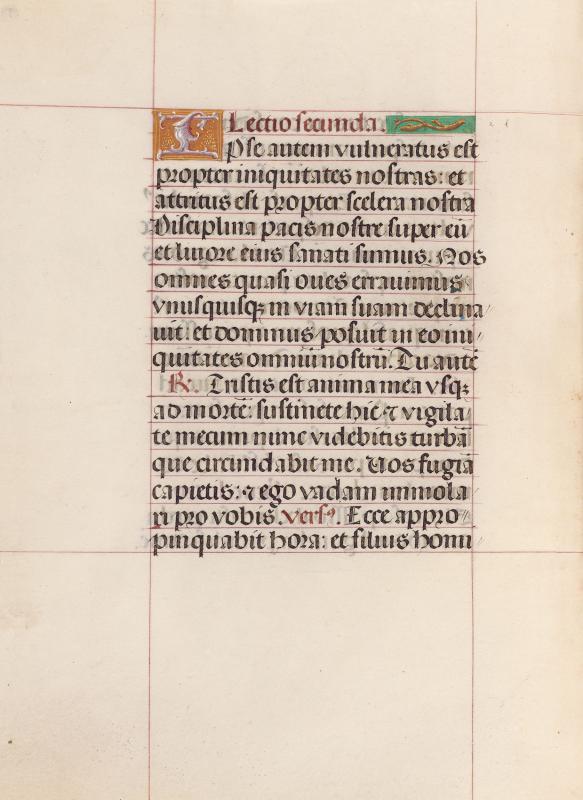 Lectio secunda.
Ipse autem vulneratus est
propter iniquitates nostras: et
attritus est propter scelera nostra
Disciplina pacis nostre super eū
et livore eius sanati sumus. Nos
omnes quasi oves erravimus
vnusquisqꝫ in viam suam declina
vit: et dominus posuit in eo ini
quitates omniū nostrū. Tu autē
R. Tristis est anima mea vsqꝫ
ad mortē: sustinete hic ⁊ vigila
te mecum nunc videbitis turbā
que circumdabit me. Vos fugiā
capietis: ⁊ ego vadam immola
ri pro vobis. versꝰ. Ecce appro
pinquabit hora: et filius homi